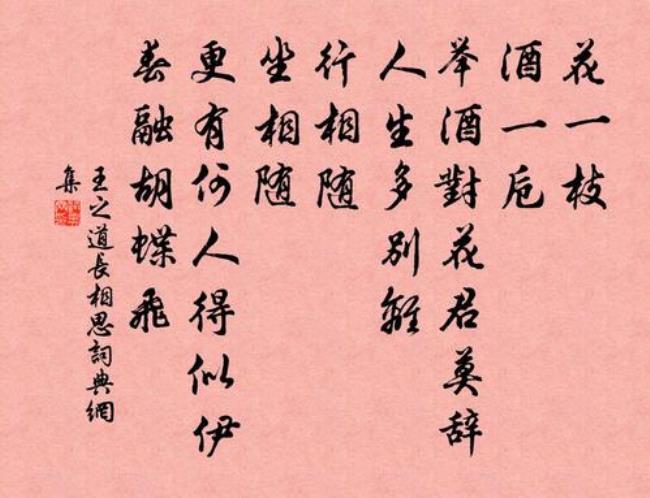 花一枝
酒一卮
举酒對花君莫辞
人生多别離
行相随
坐相随
更有何人得似伊
春融胡蝶飛
王之道長相思詞典網
集